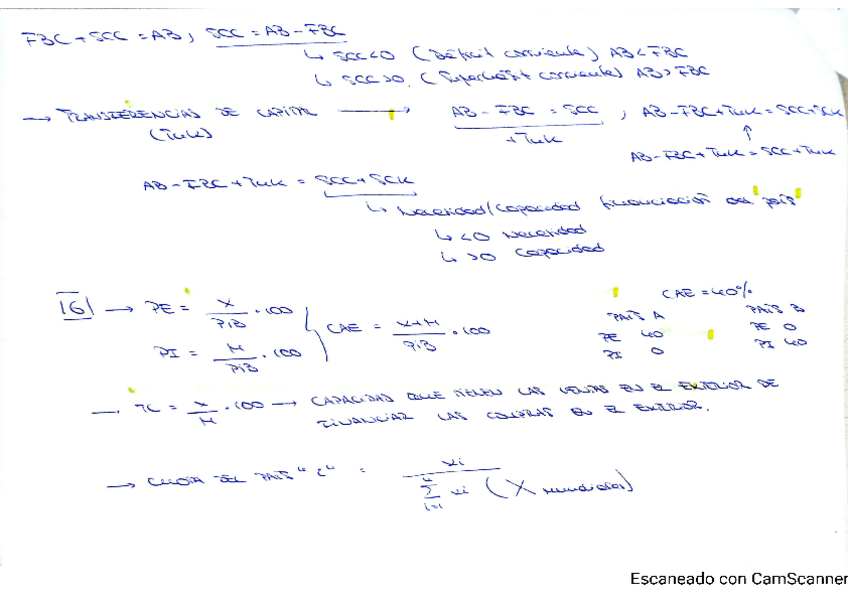 FBC + SCC = AB ; SCC = AB - FBC
↳ SCC < 0 (Déficit corriente) AB < FBC
↳ SCC > 0 (Superávit corriente) AB > FBC
→ TRANSFERENCIAS DE CAPITAL → AB - FBC = SCC ; AB - FBC + TUK = SCC + SCK
(TUK) + TUK ↑
AB - FBC + TUK = SCC + TUK
AB - FBC + TUK = SCC + SCK
↳ Necesidad/Capacidad financiación del país
↳ < 0 Necesidad
↳ > 0 Capacidad
16 → PE = X/PIB · 100
PI = M/PIB · 100
CAE = X+M/PIB · 100
CAE = 40%
PAÍS A PAÍS B
PE 40 PE 0
PI 0 PI 40
→ TC = X/M · 100 → CAPACIDAD QUE TIENEN LAS VENTAS EN EL EXTERIOR DE
FINANCIAR LAS COMPRAS EN EL EXTERIOR.
→ CUOTA DEL PAÍS "i" = xi / Σ xi (X mundiales)
i=1
Escaneado con CamScanner